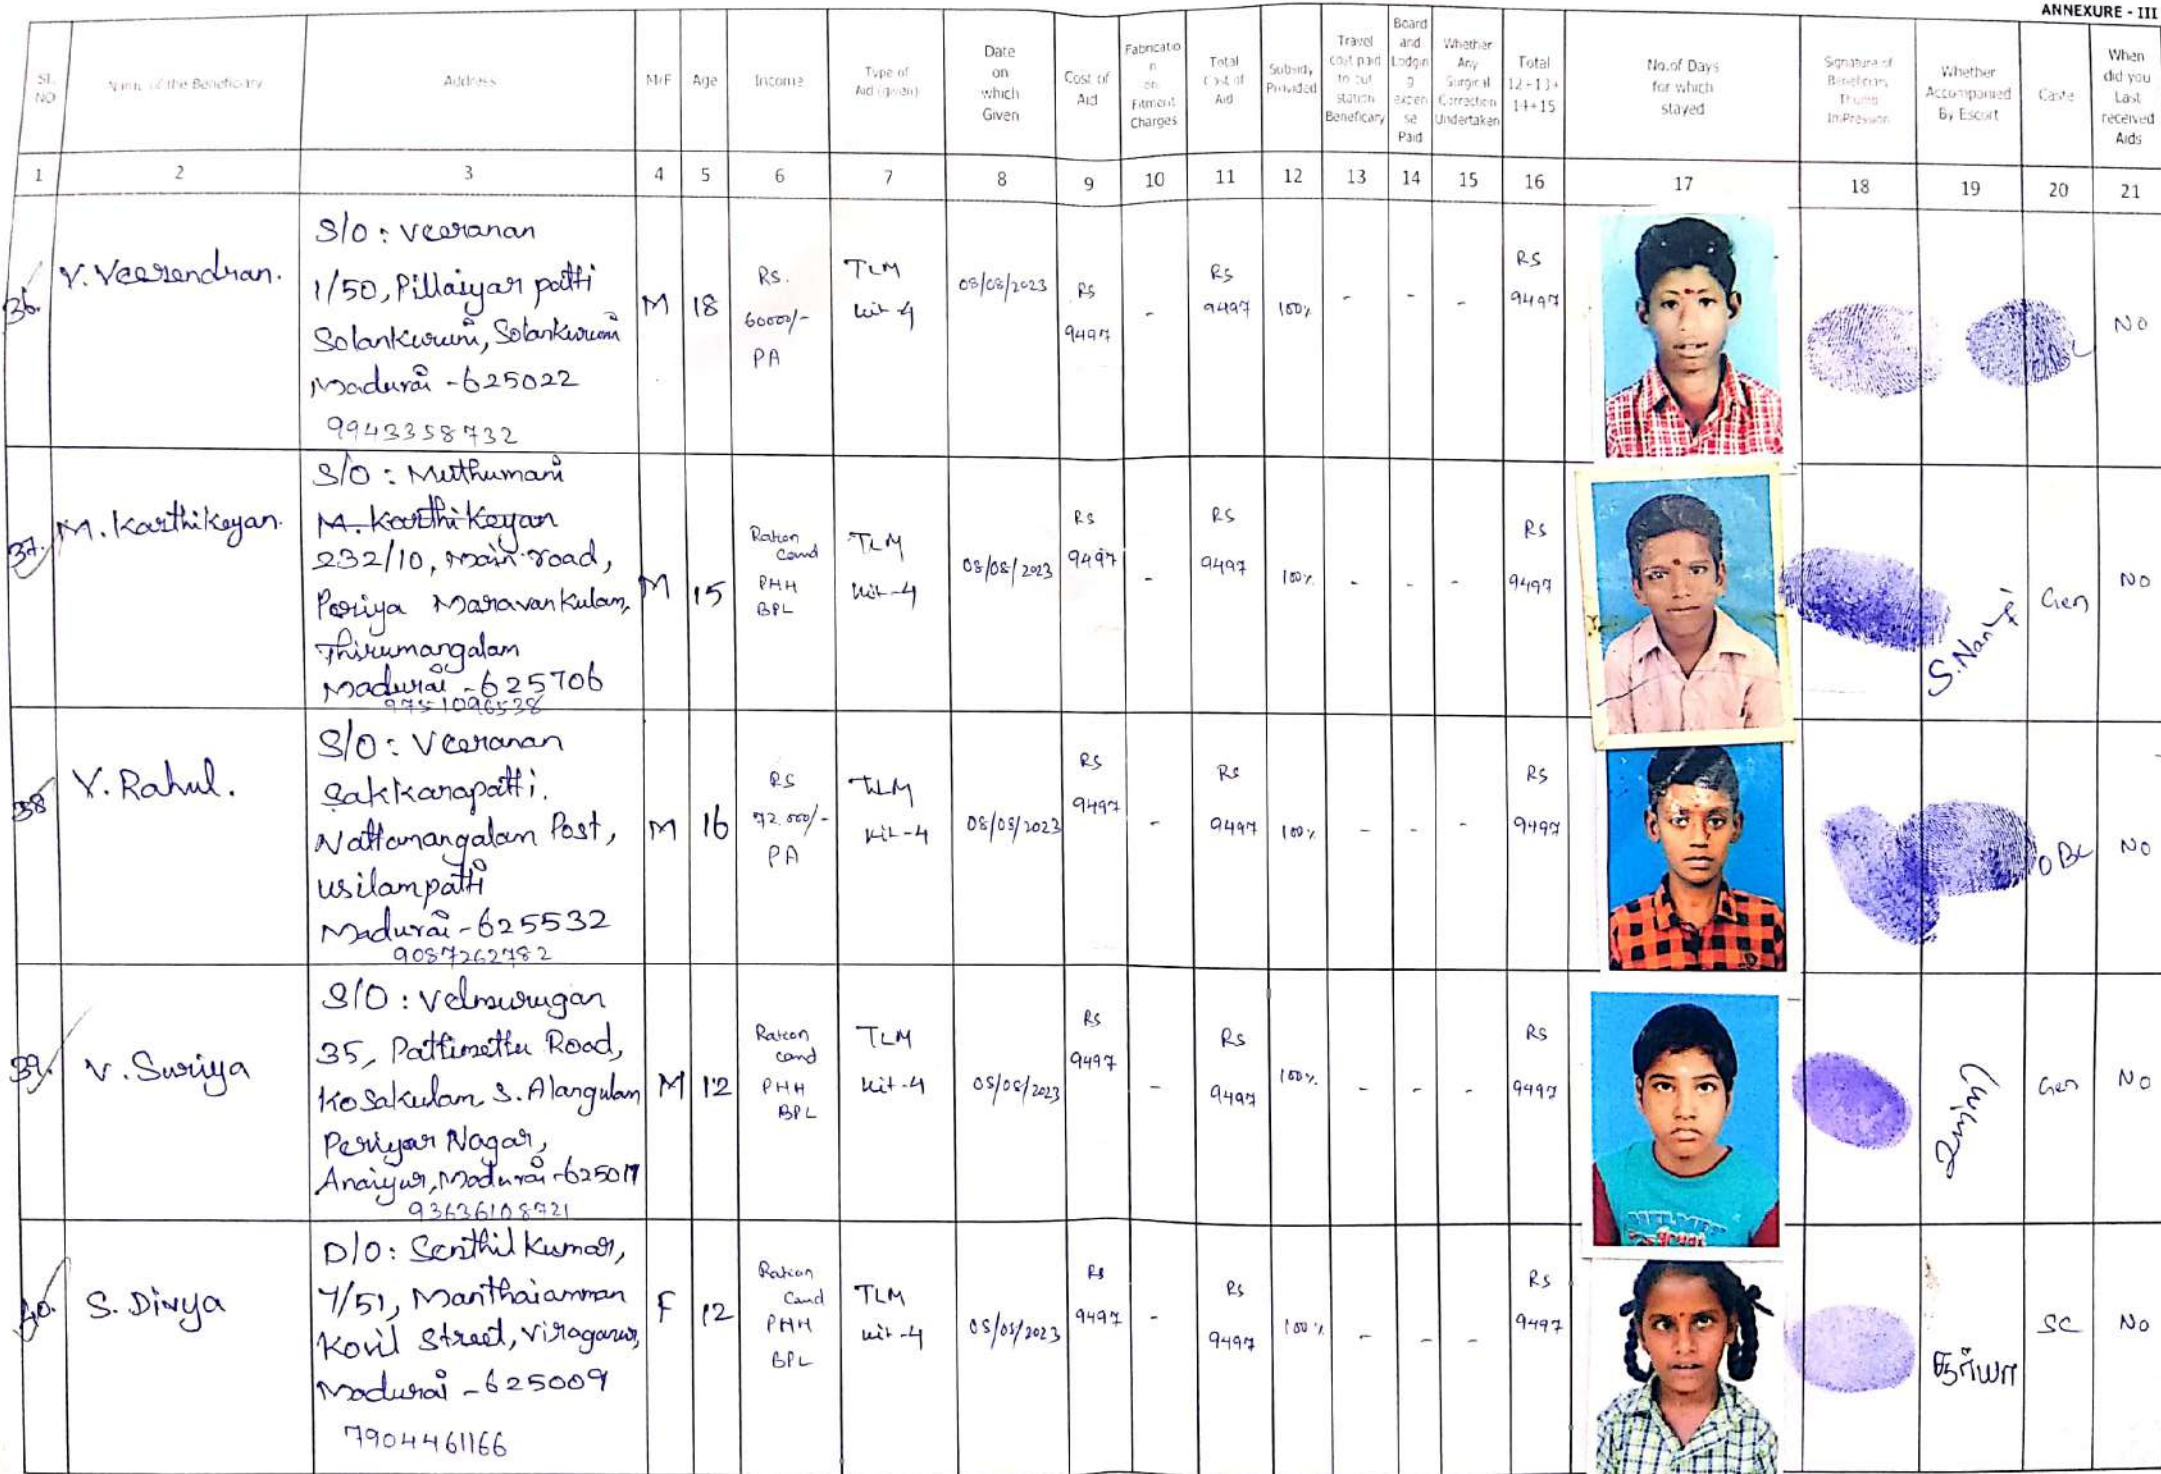 ANNEXURE - III
SL. NO
Name of the Beneficiary
Address
M/F
Age
Income
Type of
Aid (given)
Date
on
which
Given
Cost of
Aid
Fabricatio
n
on
Fitment
Charges
Total
Cost of
Aid
Subsidy
Provided
Travel
cost paid
to out
station
Beneficary
Board
and
Lodgin
g
expen
se
Paid
Whether
Any
Surgical
Correction
Undertaken
Total
12+13+
14+15
No.of Days
for which
stayed
Signature of
Beneficiary
Thumb
ImPression
Whether
Accompanied
By Escort
Caste
When
did you
Last
received
Aids
1 2 3 4 5 6 7 8 9 10 11 12 13 14 15 16 17 18 19 20 21
36.
V. Veerendran.
S/O : Veeranan
1/50, Pillaiyar patti
Solankuruni, Solankuruni
Madurai - 625022
9943358732
M
18
Rs.
60000/-
PA
TLM
kit-4
08/08/2023
Rs
9497
-
Rs
9497
100%
-
-
-
Rs
9497
NO
37.
M. Karthikeyan.
S/O : Muthumani
M. Karthikeyan
232/10, Main road,
Periya Maravankulam,
Thirumangalam
Madurai - 625706
9751096538
M
15
Ration
Card
PHH
BPL
TLM
kit-4
08/08/2023
Rs
9497
-
Rs
9497
100%
-
-
-
Rs
9497
Gen
NO
38
V. Rahul.
S/O : Veeranan
Sakkarapatti.
Nattamangalam Post,
usilampatti
Madurai - 625532
9087262782
M
16
RS
72.000/-
PA
TLM
kit-4
08/08/2023
Rs
9497
-
Rs
9497
100%
-
-
-
Rs
9497
OBC
NO
39.
V. Suriya
S/O : Velmurugan
35, Pattimettu Road,
Kosakulam S. Alangulam
Periyar Nagar,
Anaiyur, Madurai - 625017
93636108721
M
12
Ration
card
PHH
BPL
TLM
kit-4
08/08/2023
Rs
9497
-
Rs
9497
100%
-
-
-
Rs
9497
Gen
NO
40.
S. Divya
D/O : Senthil Kumar,
7/51, Manthaiamman
Kovil Street, Viraganur,
Madurai - 625009
7904461166
F
12
Ration
Card
PHH
BPL
TLM
kit-4
08/08/2023
Rs
9497
-
Rs
9497
100%
-
-
-
Rs
9497
சூர்யா
SC
NO